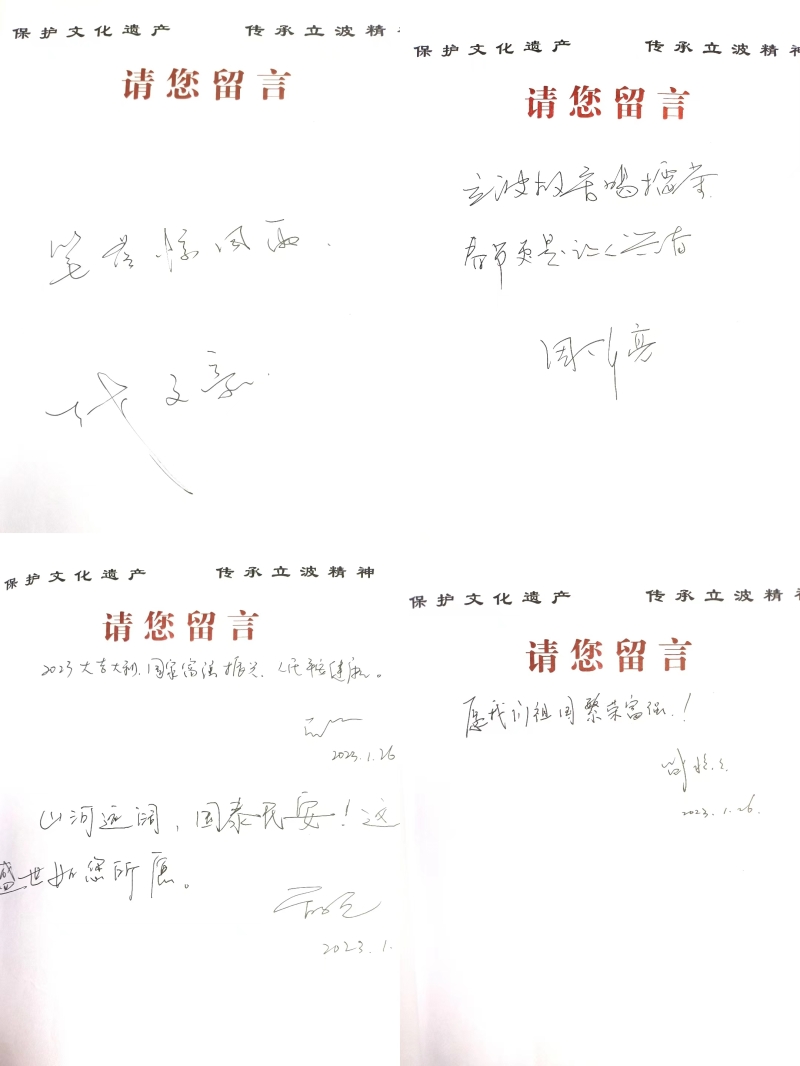 保护文化遗产 传承立波精神
请您留言
笔落惊风雨.
一代文豪.
保护文化遗产 传承立波精神
请您留言
立波故
春节更是让人
周 亮
保护文化遗产 传承立波精神
请您留言
2023大吉大利,国家富强振兴,人民幸福健康。
2023.1.26
山河远阔,国泰民安!这
盛世如您所愿。
2023.1.
保护文化遗产 传承立波精神
请您留言
愿我们祖国繁荣富强!
2023.1.26.